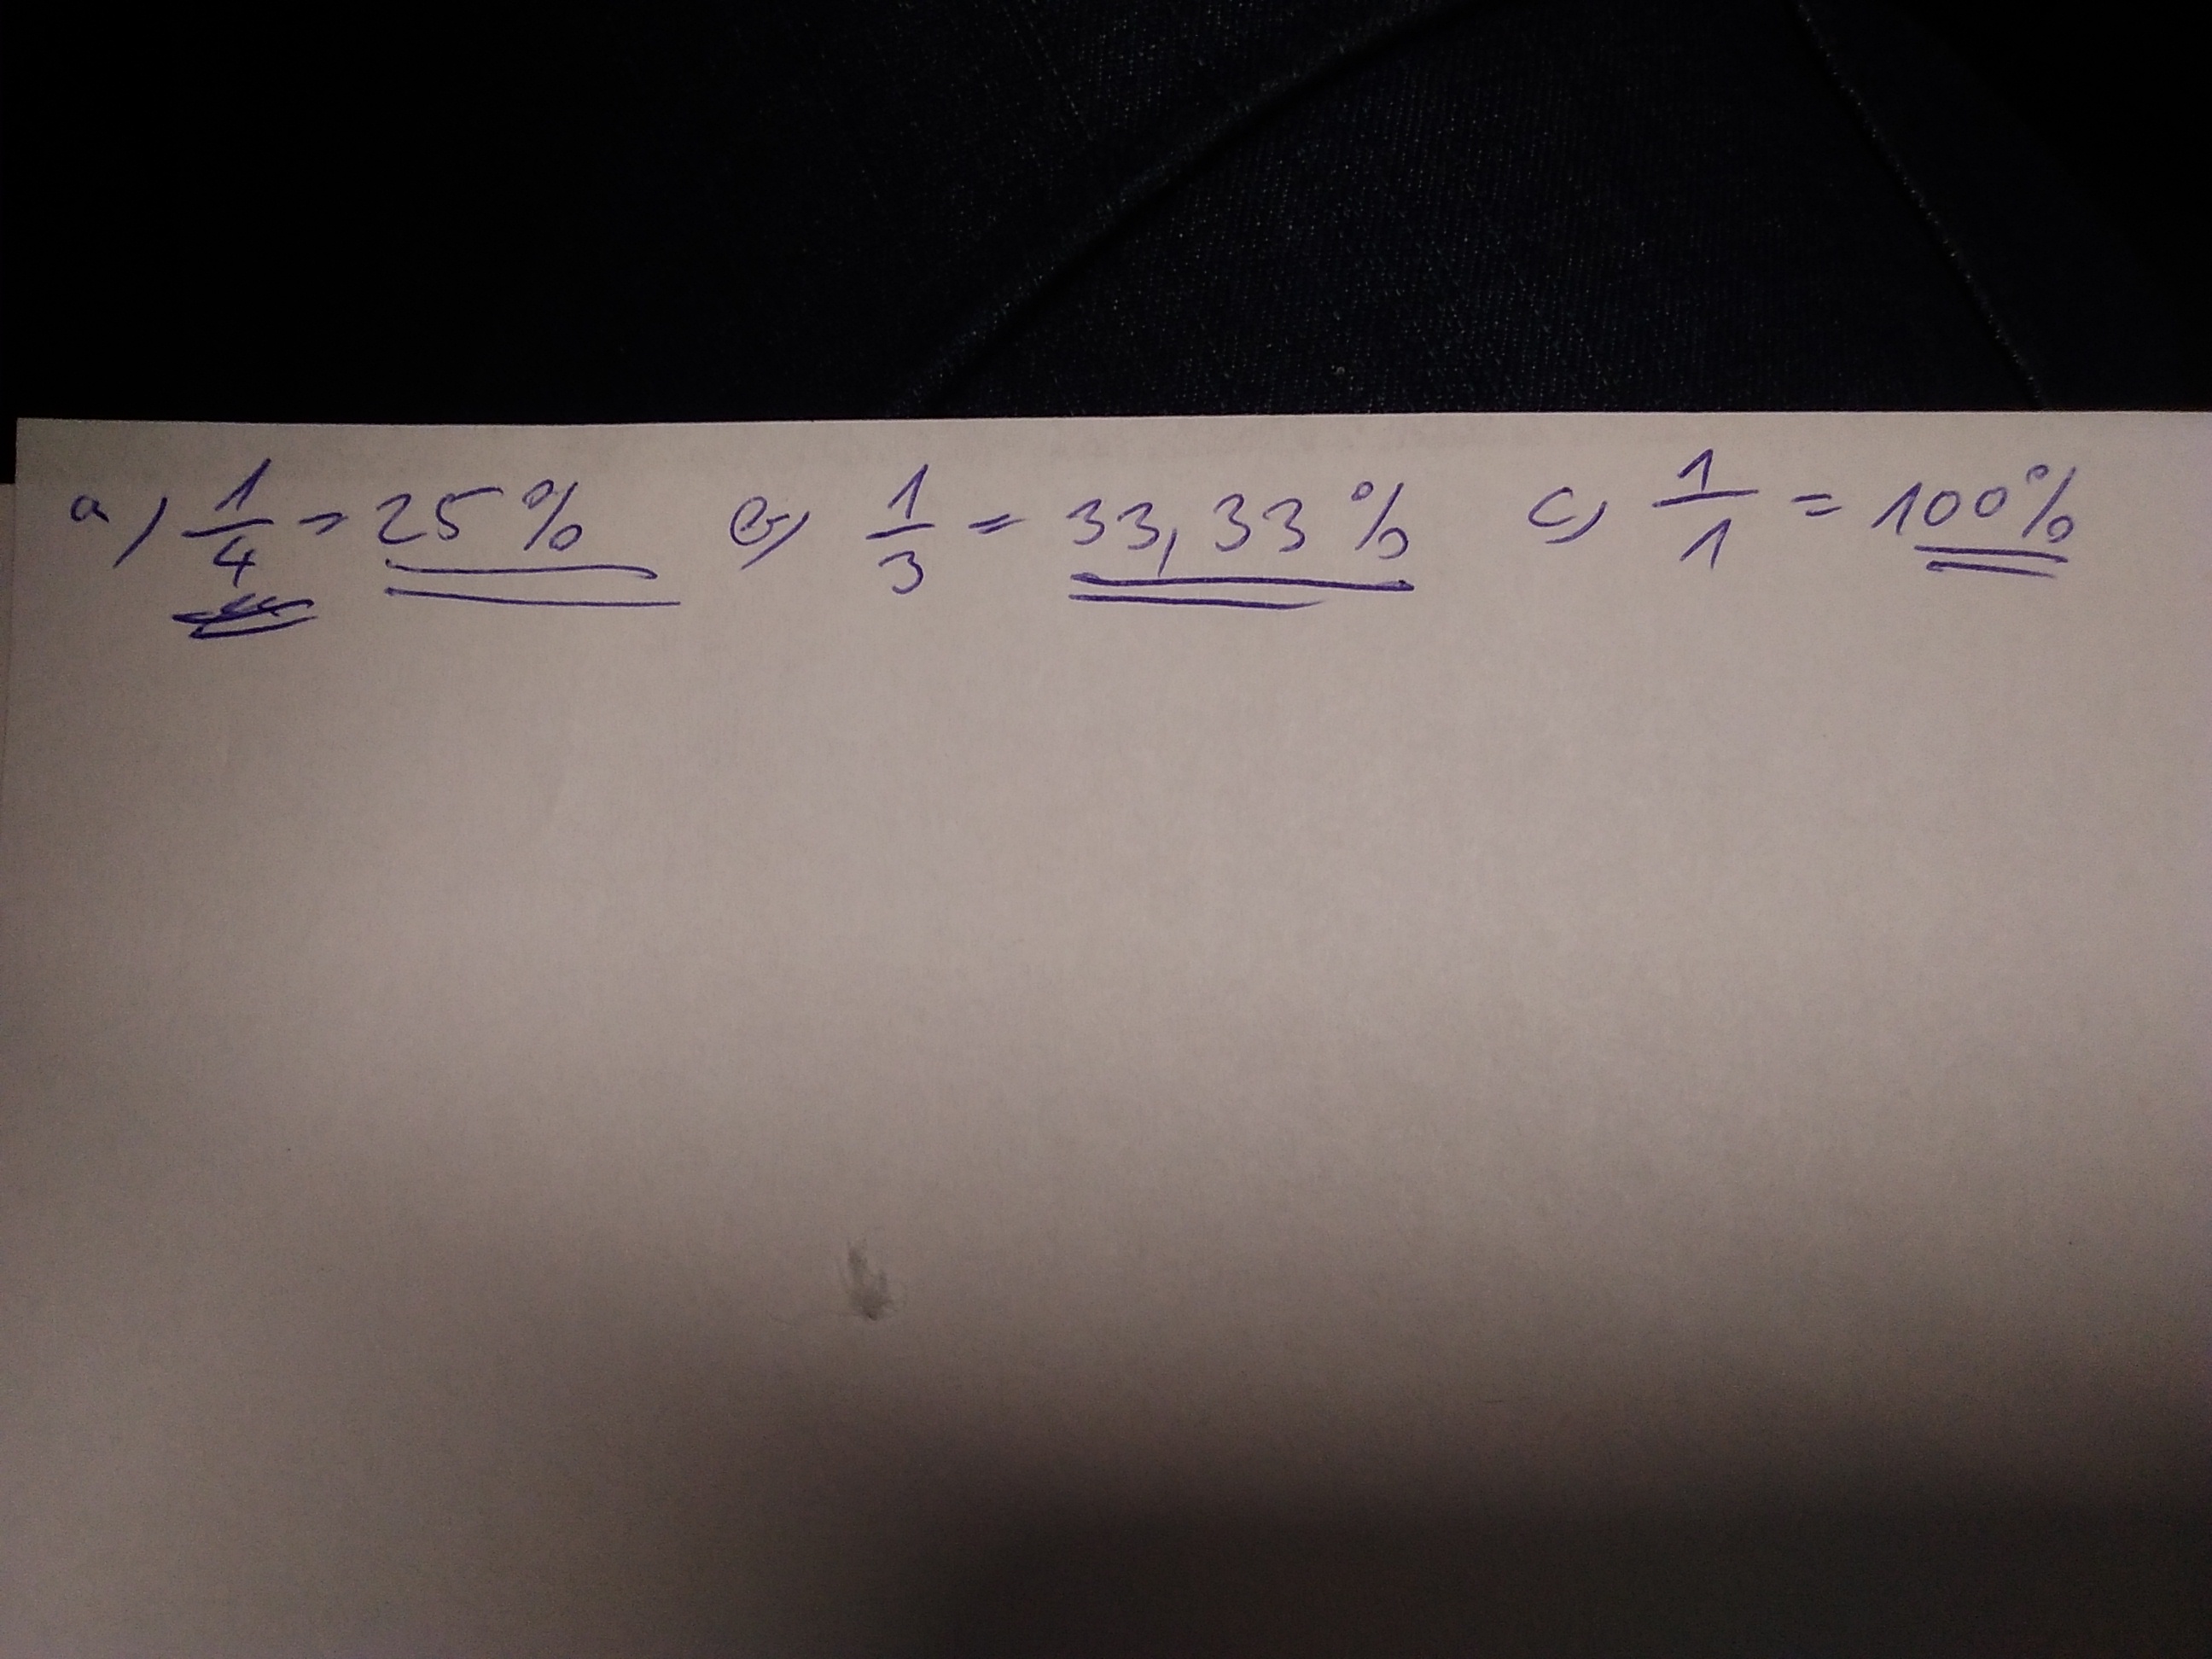 a) 1/4 = 25% b) 1/3 = 33,33% c) 1/1 = 100%